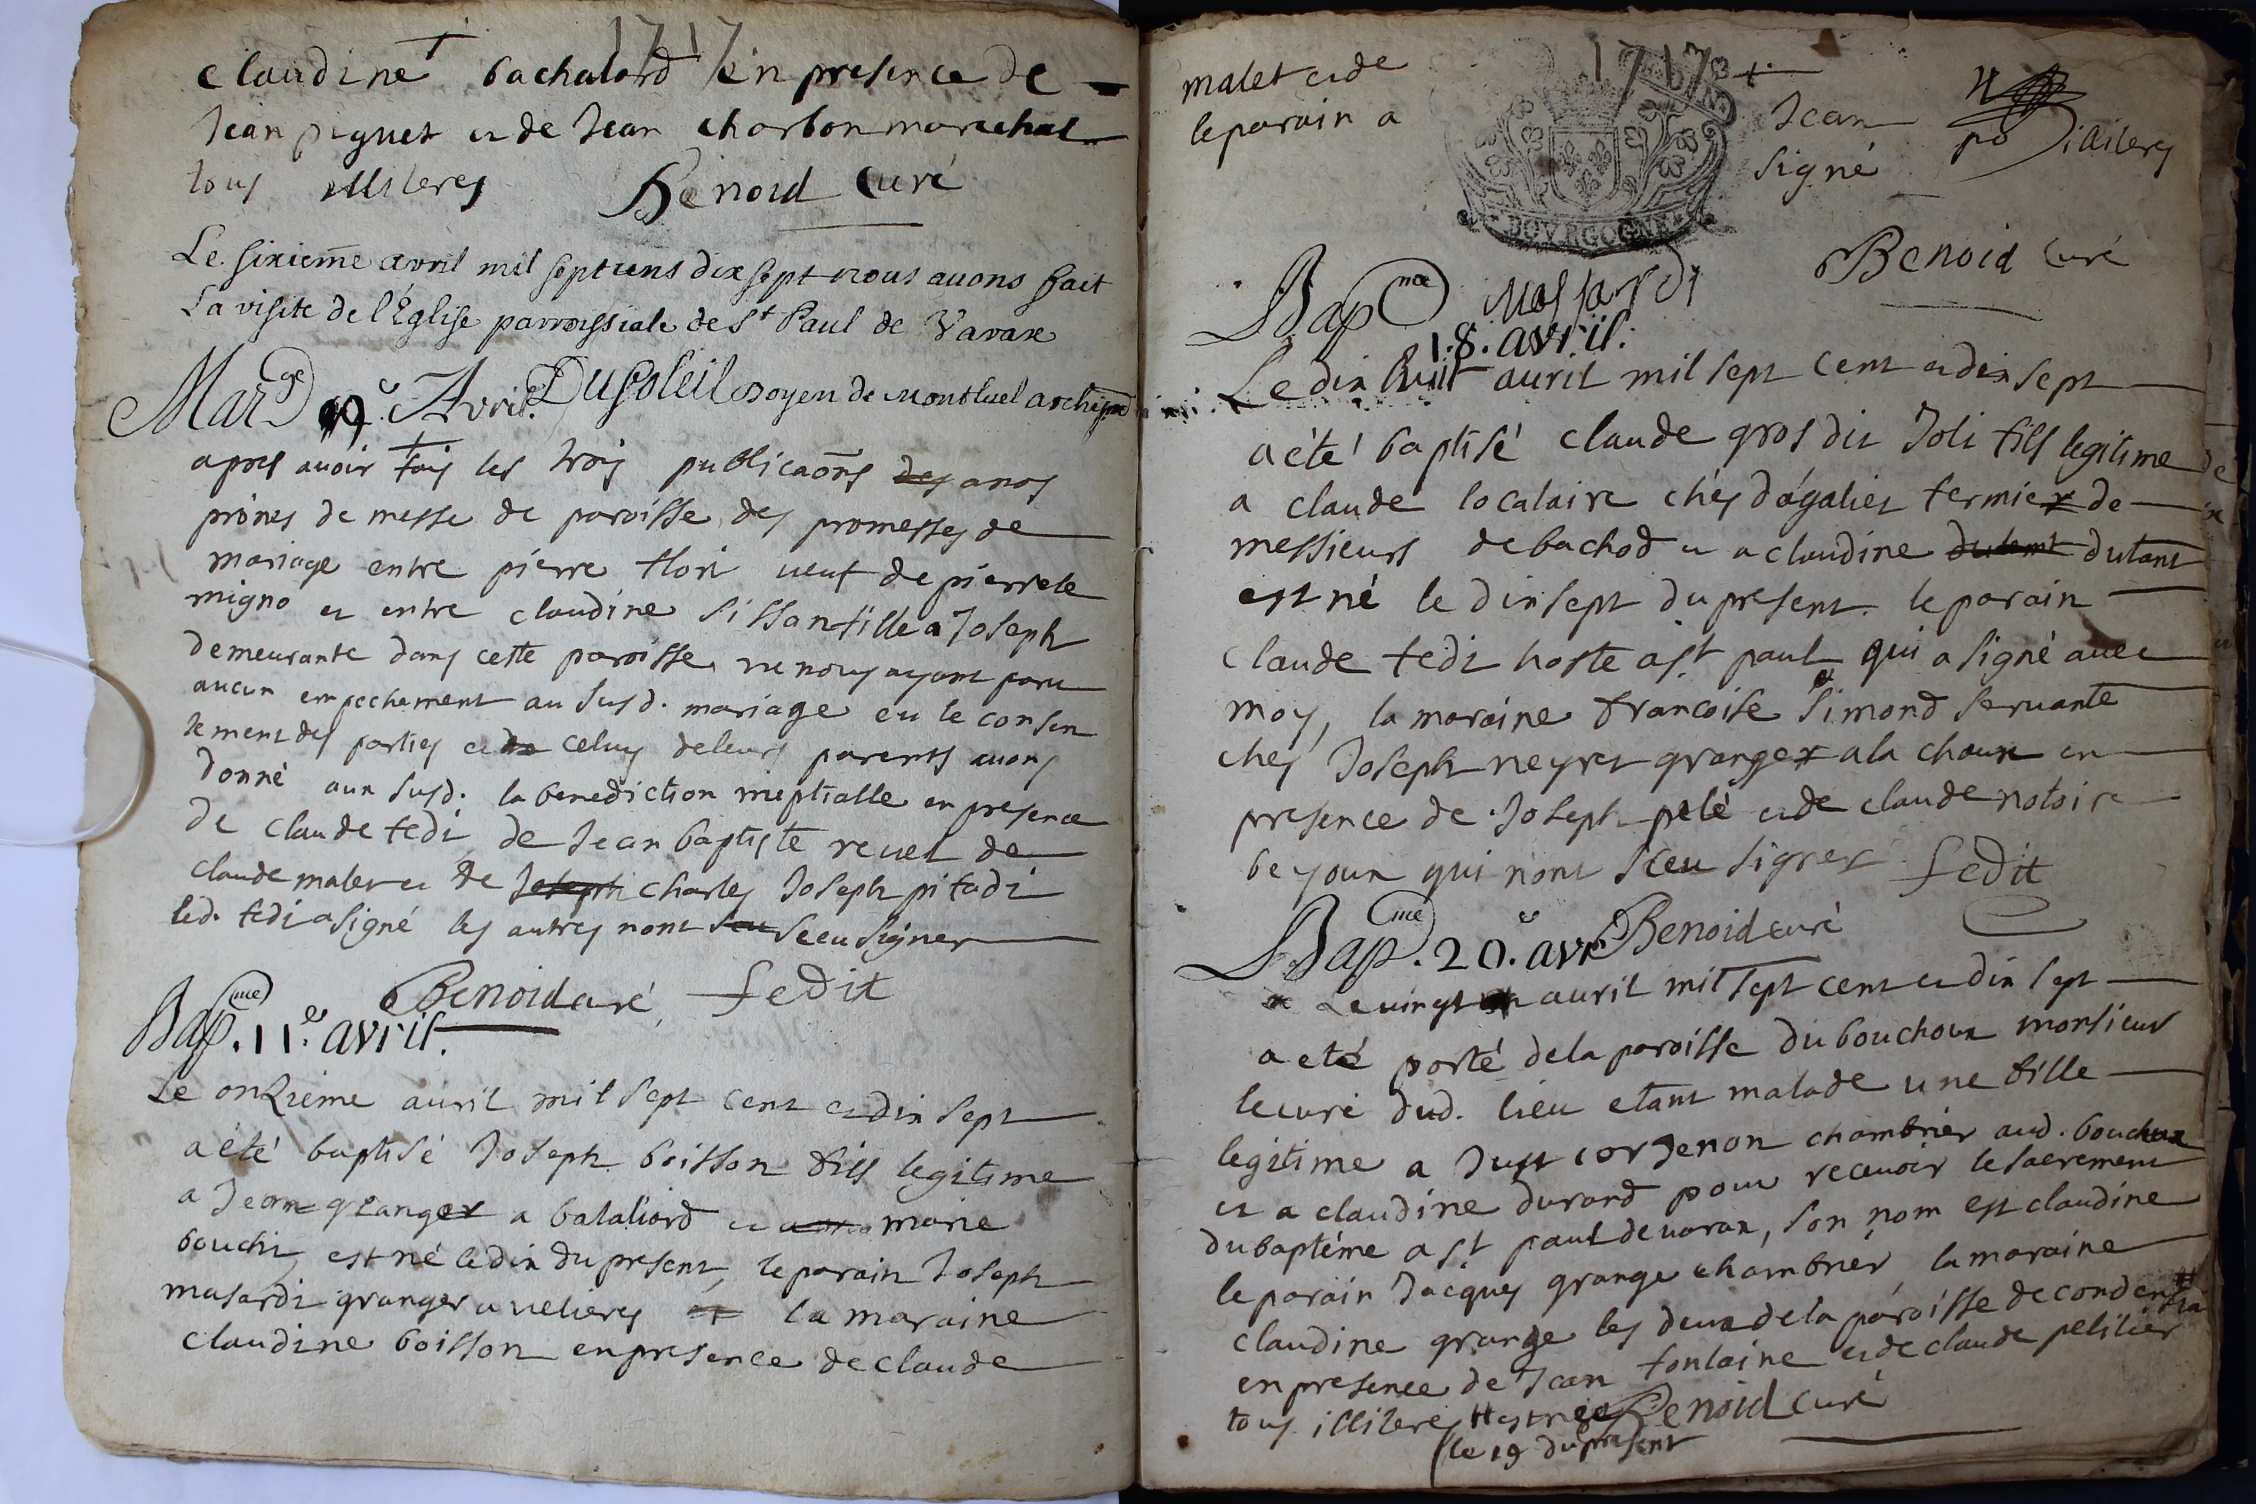 1717
claudine bachalard en presence de
Jean piguet et de Jean charbon marechal
tous illiteres Benoid curé
Le sixieme avril mil sept cens dix sept nous avons fait
La visite de l'Église parroissiale de St Paul de Varax
Dusoleil Doyen de Montluel archipre
Marge 9e Avril.
apres avoir fais les trois publicaons des a nos
prônes de messe de paroisse des promesses de
mariage entre piérre flori veuf de pierrete
migno et entre claudine sissan fille a Joseph
demeurante dans cette paroisse ne nous ayant paru
aucun empechement au susd. mariage eu le consen
tement des parties et de celuy de leurs parents avons
donné aux susd. la benediction nuptialle en presence
de claude fedi de Jean baptiste revel de
claude malet et de Joseph charles Joseph pitadi
led. fedi a signé les autres nont sceu signer
Benoid curé fedit
Bapme. 11.e avril.
Le onzieme avril mil sept cent et dix sept
a été baptisé Joseph boisson fils legitime
a Jean granger a bataliard et marie
bouchi, est né le dix du present, le parain Joseph
masardi granger a velieres et la maraine
claudine boisson en presence de claude
1717
malet et de Jean
le parain a signé illiteres
BOVRGOGNE
Benoid curé
Bapme masardi
18. avril.
Le dix huit avril mil sept cent et dix sept
a été baptisé claude gros dit Joli fils legitime
a claude localaire chés dágalier fermier de
messieurs de bachod et a claudine dutant dutant
est né le dix sept du present. le parain
claude fedi hoste a st paul qui a signé avec
moy, la maraine francoise simond servante
ches Joseph neyret granger a la chaux en
presence de Joseph pelé et de claude notoire
beyoux qui nont sceu signer fedit
Benoid curé
Bapme. 20.e avr
Le vingt avril mil sept cent et dix sept
a eté porté de la paroisse du bouchoux monsieur
le curé dud. lieu etant malade une fille
legitime a Just corjenon chambrier aud. bouchoux
et a claudine durand pour recevoir le sacrement
du baptéme a st paul de varax, son nom est claudine
le parain Jacques grange chambrier, la maraine
claudine grange les deux de la paroisse de condeissia
en presence de Jean fontaine et de claude pelitier
tous illiteres # est née Benoid curé
le 19 du present